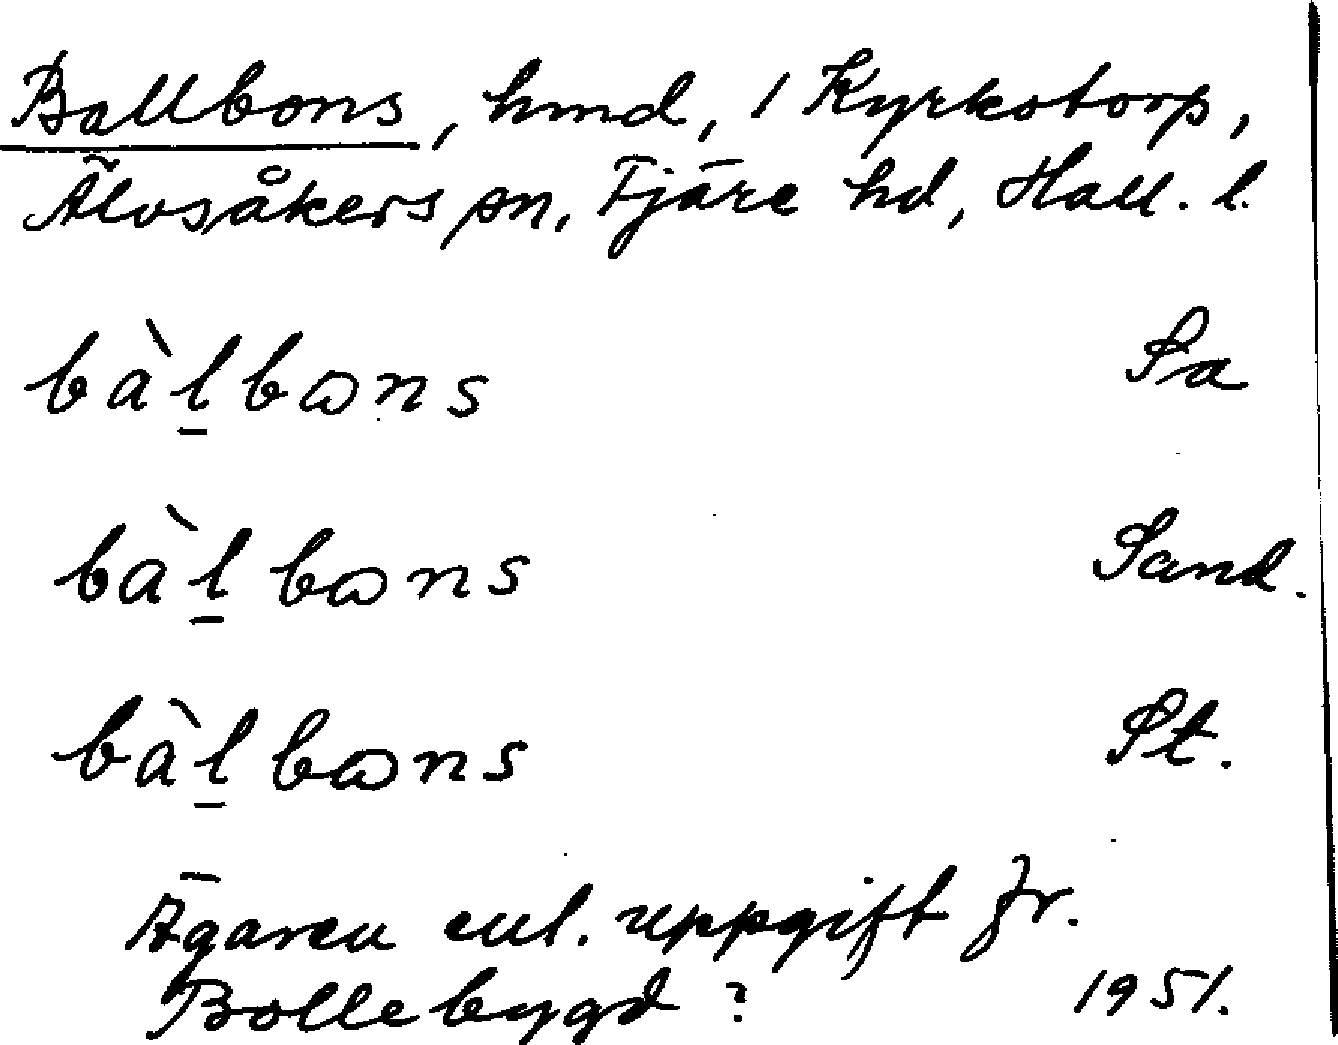 Ballbons, hmd, 1 Kyrkotorp,
Älvsåkers sn, Fjäre hd, Hall. l.
bàl̠bωns Sa
bàl̠bωns Sand.
bàl̠bωns St.
Ägaren enl. uppgift fr.
Bollebygd? 1951.